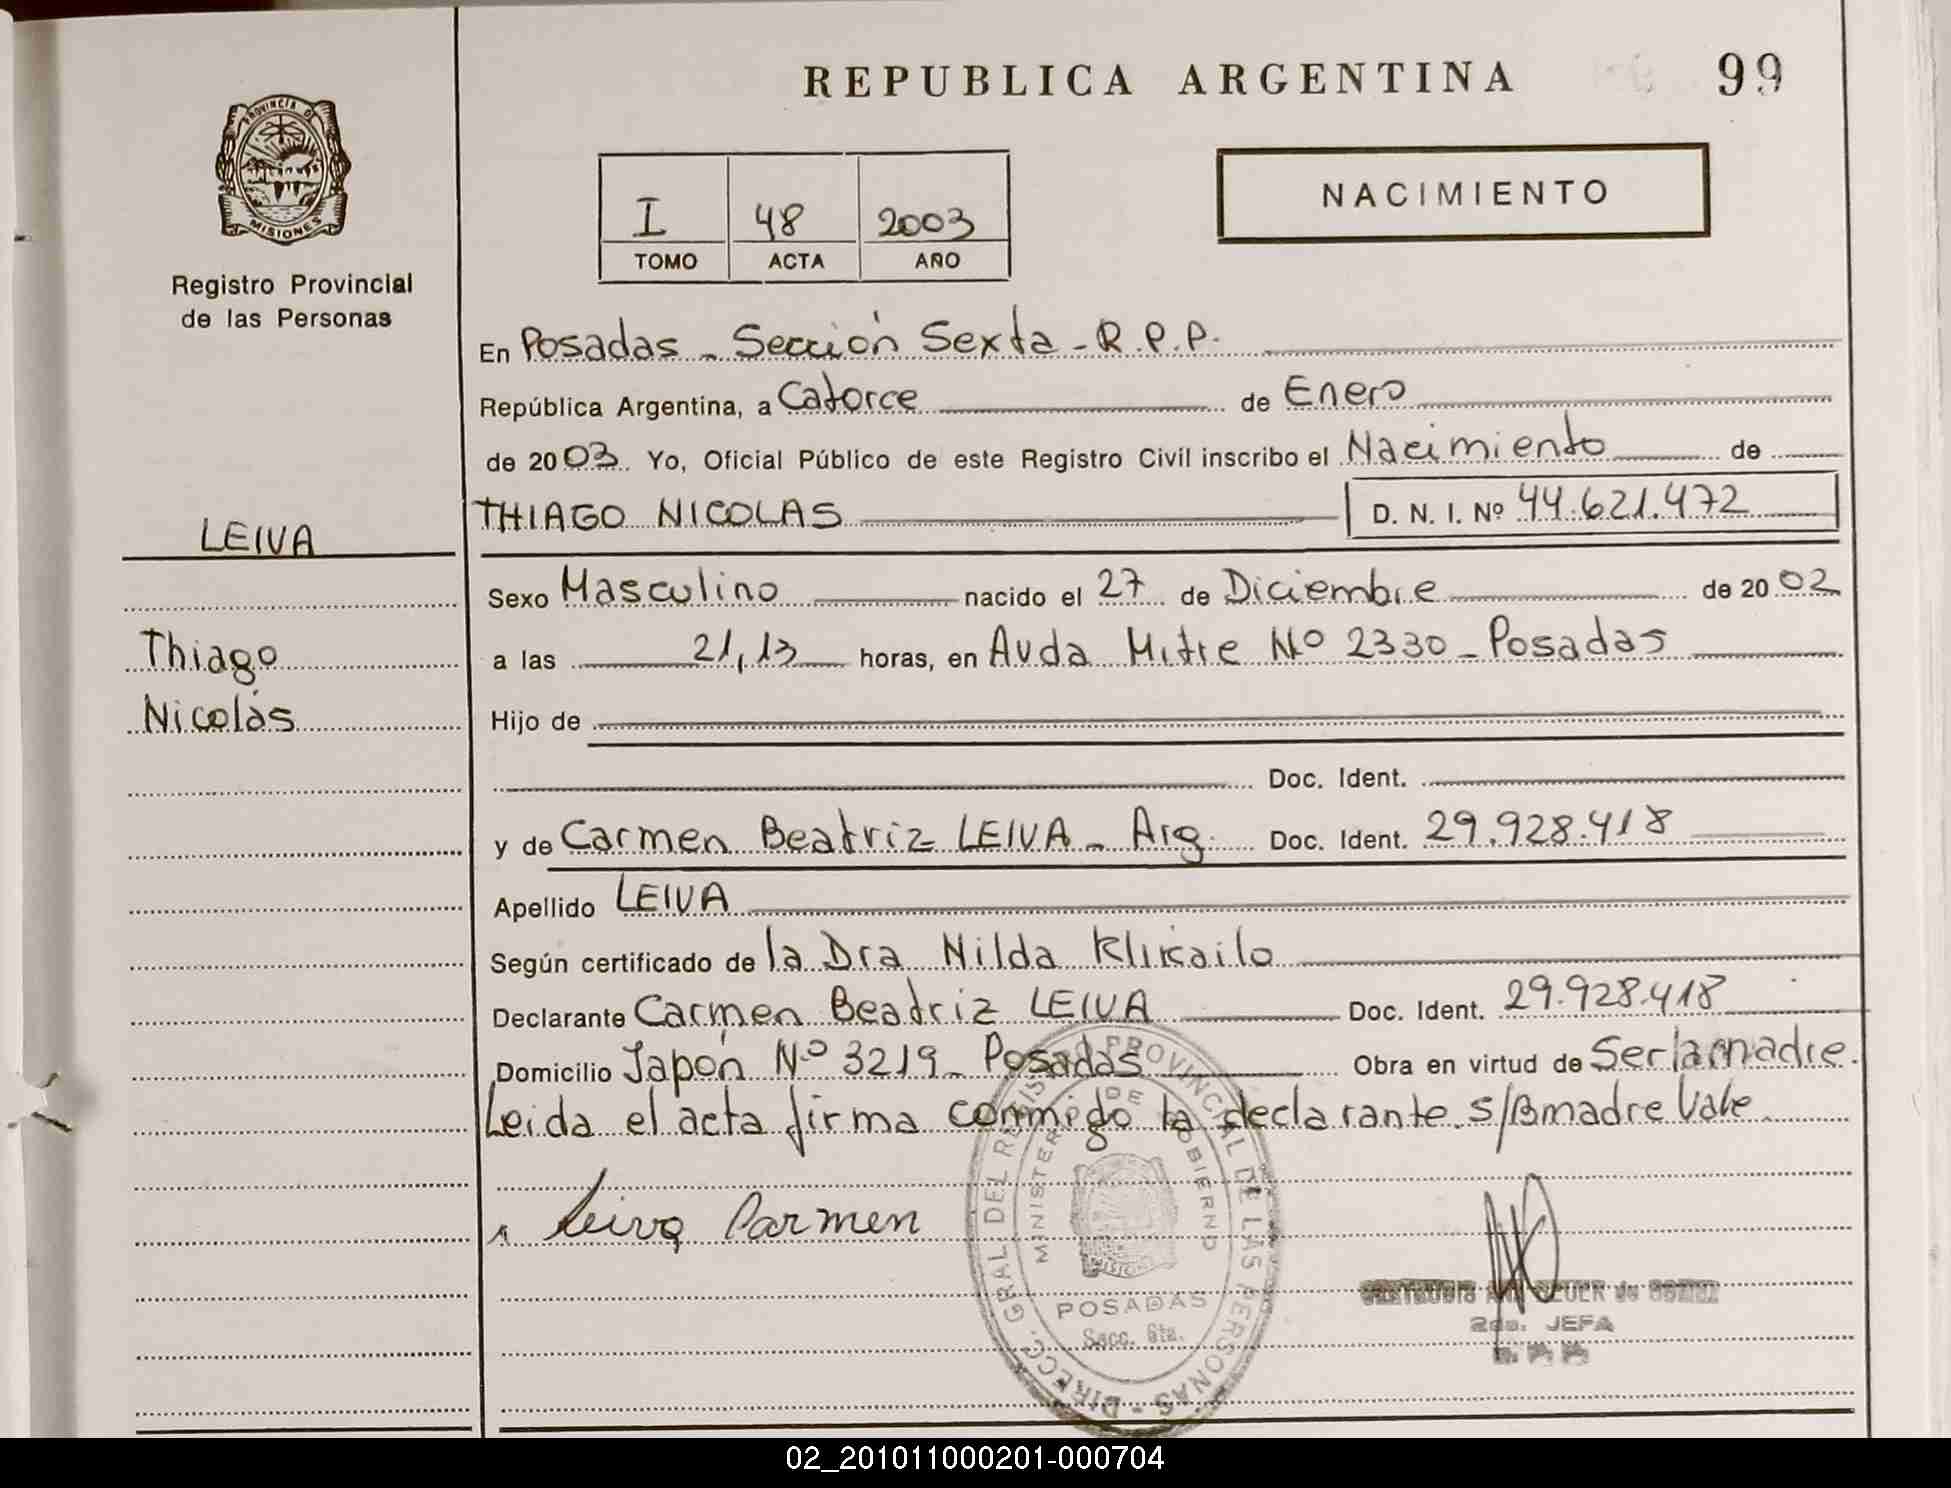 REPUBLICA ARGENTINA 99
PROVINCIA DE
MISIONES
Registro Provincial
de las Personas
I 48 2003
TOMO ACTA AÑO
NACIMIENTO
En Posadas - Sección Sexta - R.P.P.
República Argentina, a Catorce de Enero
de 2003. Yo, Oficial Público de este Registro Civil inscribo el Nacimiento de
THIAGO NICOLAS D. N. I. Nº 44.621.472
LEIVA
Thiago
Nicolás
Sexo Masculino nacido el 27 de Diciembre de 2002
a las 21,13 horas, en Avda Mitre Nº 2330 - Posadas
Hijo de
Doc. Ident.
y de Carmen Beatriz LEIVA - Arg. Doc. Ident. 29.928.418
Apellido LEIVA
Según certificado de la Dra Nilda Klikailo
Declarante Carmen Beatriz LEIVA Doc. Ident. 29.928.418
Domicilio Japón Nº 3219 - Posadas Obra en virtud de Ser la madre.
Leida el acta firma conmigo la declarante. s/B madre Vale
Leiva Carmen
DIRECC. GRAL. DEL REGISTRO PROVINCIAL DE LAS PERSONAS
MINISTERIO DE GOBIERNO
POSADAS
Secc. 6ta.
2da. JEFA
02_201011000201-000704